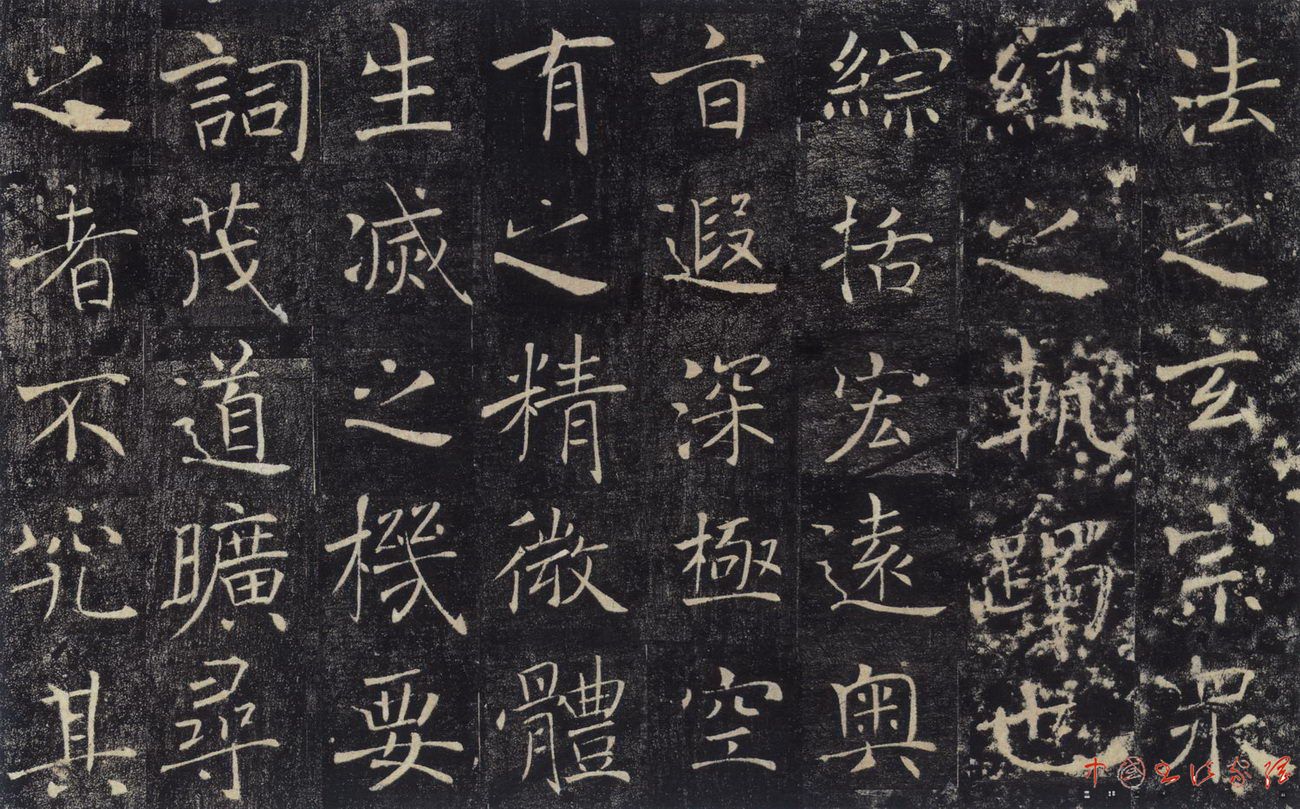 法之玄宗眾
經之軌躅也
綜括宏遠奧
旨遐深極空
有之精微體
生滅之機要
詞茂道曠尋
之者不究其